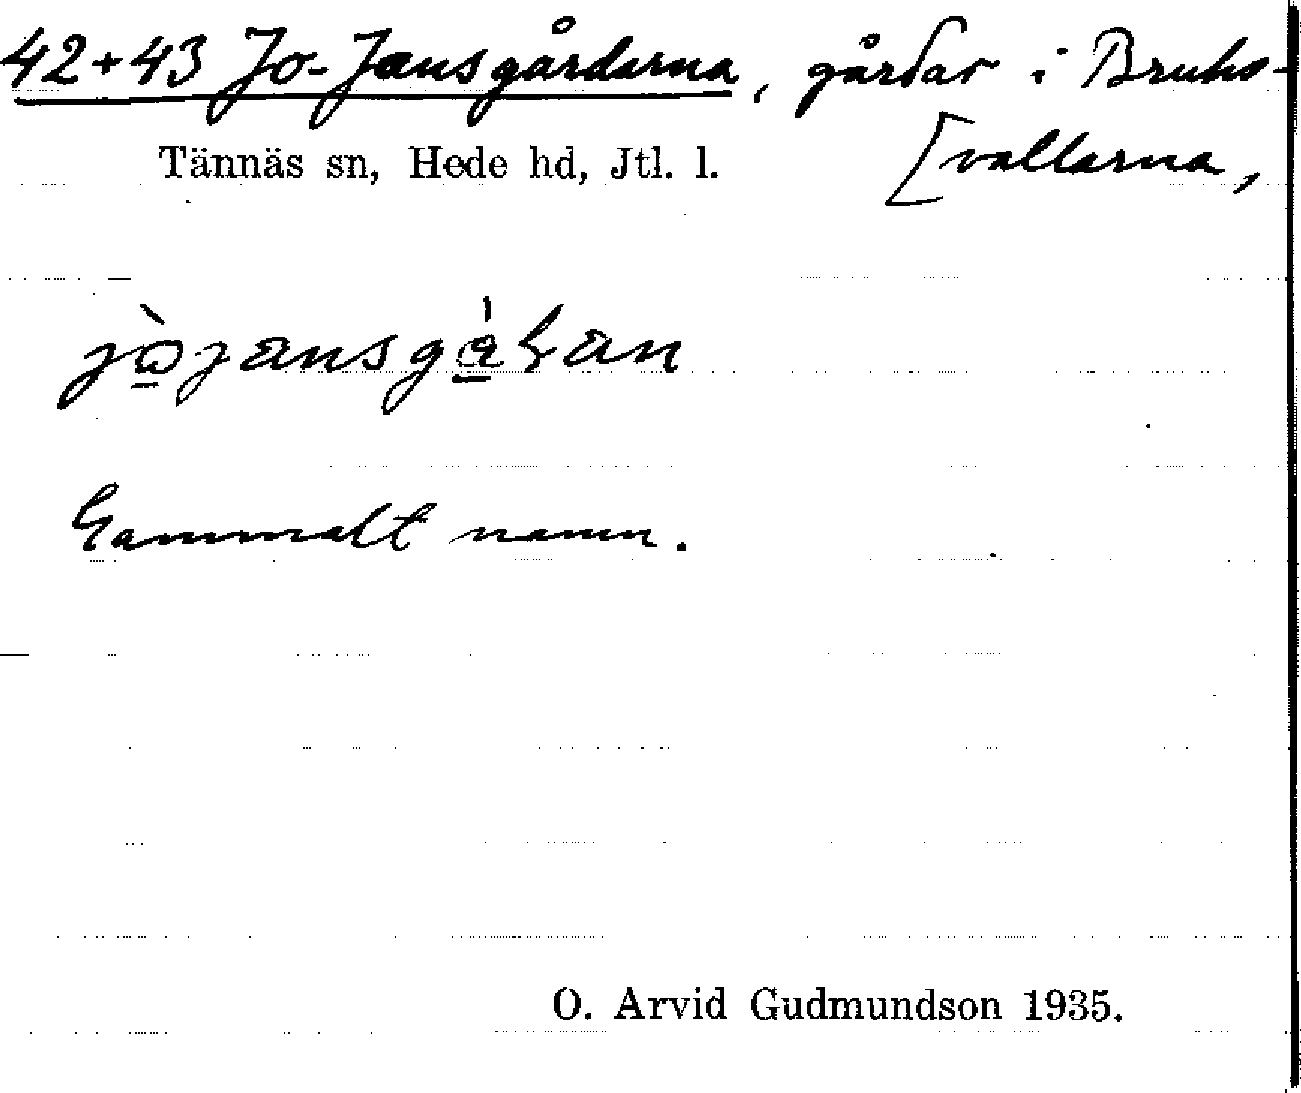 42+43 Jo-Jansgårdarna, gårdar i Bruks-
[vallarna,
Tännäs sn, Hede hd, Jtl. l.
Gammalt namn.
O. Arvid Gudmundson 1935.